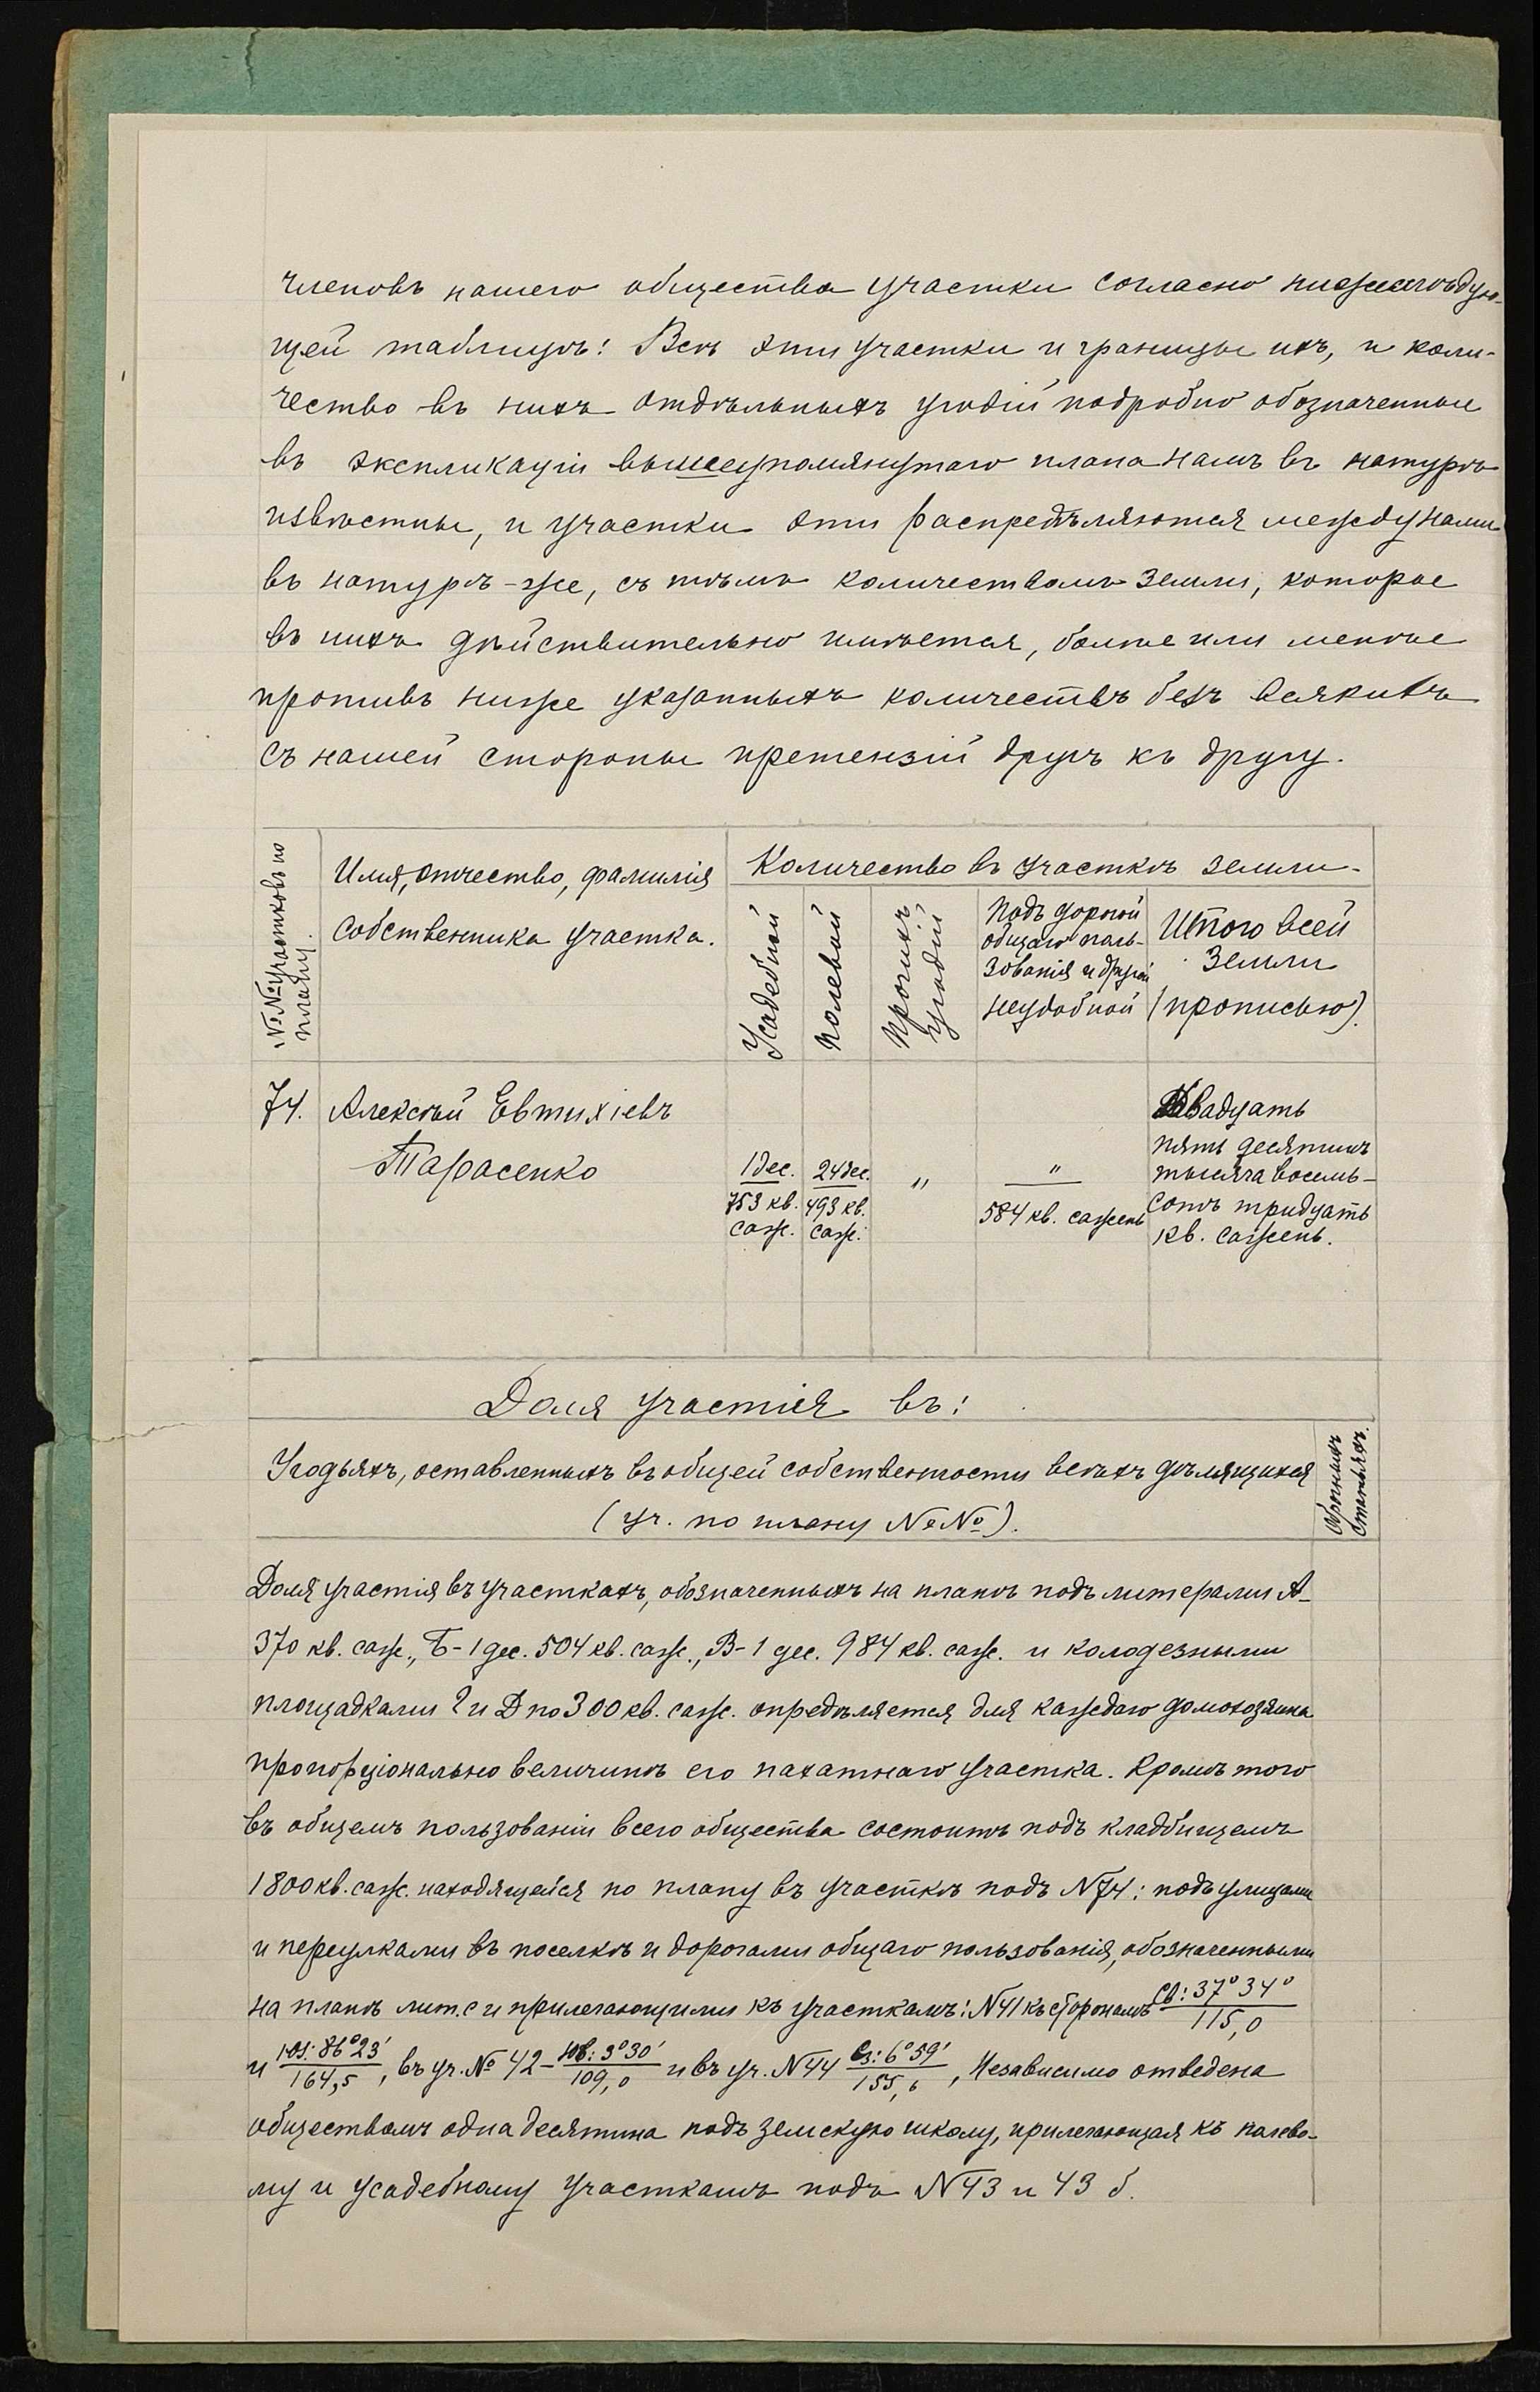 членовъ нашего общества участки согласно нижеслѣдую-
щей таблицѣ: Всѣ эти участки и границы ихъ, и коли-
чество въ нихъ отдѣльныхъ угодій подробно обозначенные
въ экспликаціи вышеупомянутаго плана намъ въ натурѣ
извѣстны, и участки эти распредѣляются между нами
въ натурѣ-же, съ тѣмъ количествомъ земли, которое
въ нихъ дѣйствительно имѣется, болѣе или менѣе
противъ ниже указанныхъ количествъ безъ всякихъ
съ нашей стороны претензій другъ къ другу.
№№ участковъ по
плану.
Имя, отчество, фамилія
собственника участка.
Количество въ участкѣ земли-
Усадебной
полевой
прочихъ
угодій
подъ дорогой
общаго поль-
зованія и другой
неудобной
Итого всей
земли
(прописью).
74.
Алексѣй Евтихіевъ
Тарасенко
1 дес.
753 кв.
саж.
24 дес.
493 кв.
саж.
"
"
584 кв. сажень
Двадцать
пять десятинъ
тысяча восемь-
сотъ тридцать
кв. сажень.
Доля участія въ:
Угодьяхъ, оставленныхъ въ общей собственности всѣхъ дѣлящихся
(уч. по плану №№).
Оброчныхъ
статьяхъ.
Доля участія въ участкахъ, обозначенныхъ на планѣ подъ литерами А-
370 кв. саж., Б-1 дес. 504 кв. саж., В-1 дес. 984 кв. саж. и колодезными
площадками Г и Д по 300 кв. саж. опредѣляется для каждаго домохозяина
пропорціонально величинѣ его пахатнаго участка. Кромѣ того
въ общемъ пользованіи всего общества состоитъ подъ кладбищемъ
1800 кв. саж. находящейся по плану въ участкѣ подъ №74; подъ улицами
и переулками въ поселкѣ и дорогами общаго пользованія, обозначенными
на планѣ лит. с и прилегающими къ участкамъ: №41 къ сторонамъ СВ: 37° 34° / 115,0
и ЮЗ: 86°23' / 164,5, въ уч. № 42 - ЮВ: 3°30' / 109,0 и въ уч. №44 СЗ: 6°59' / 155,6, Независимо отведена
обществомъ одна десятина подъ земскую школу, прилегающая къ полево-
му и усадебному участкамъ подъ №43 и 43 б.